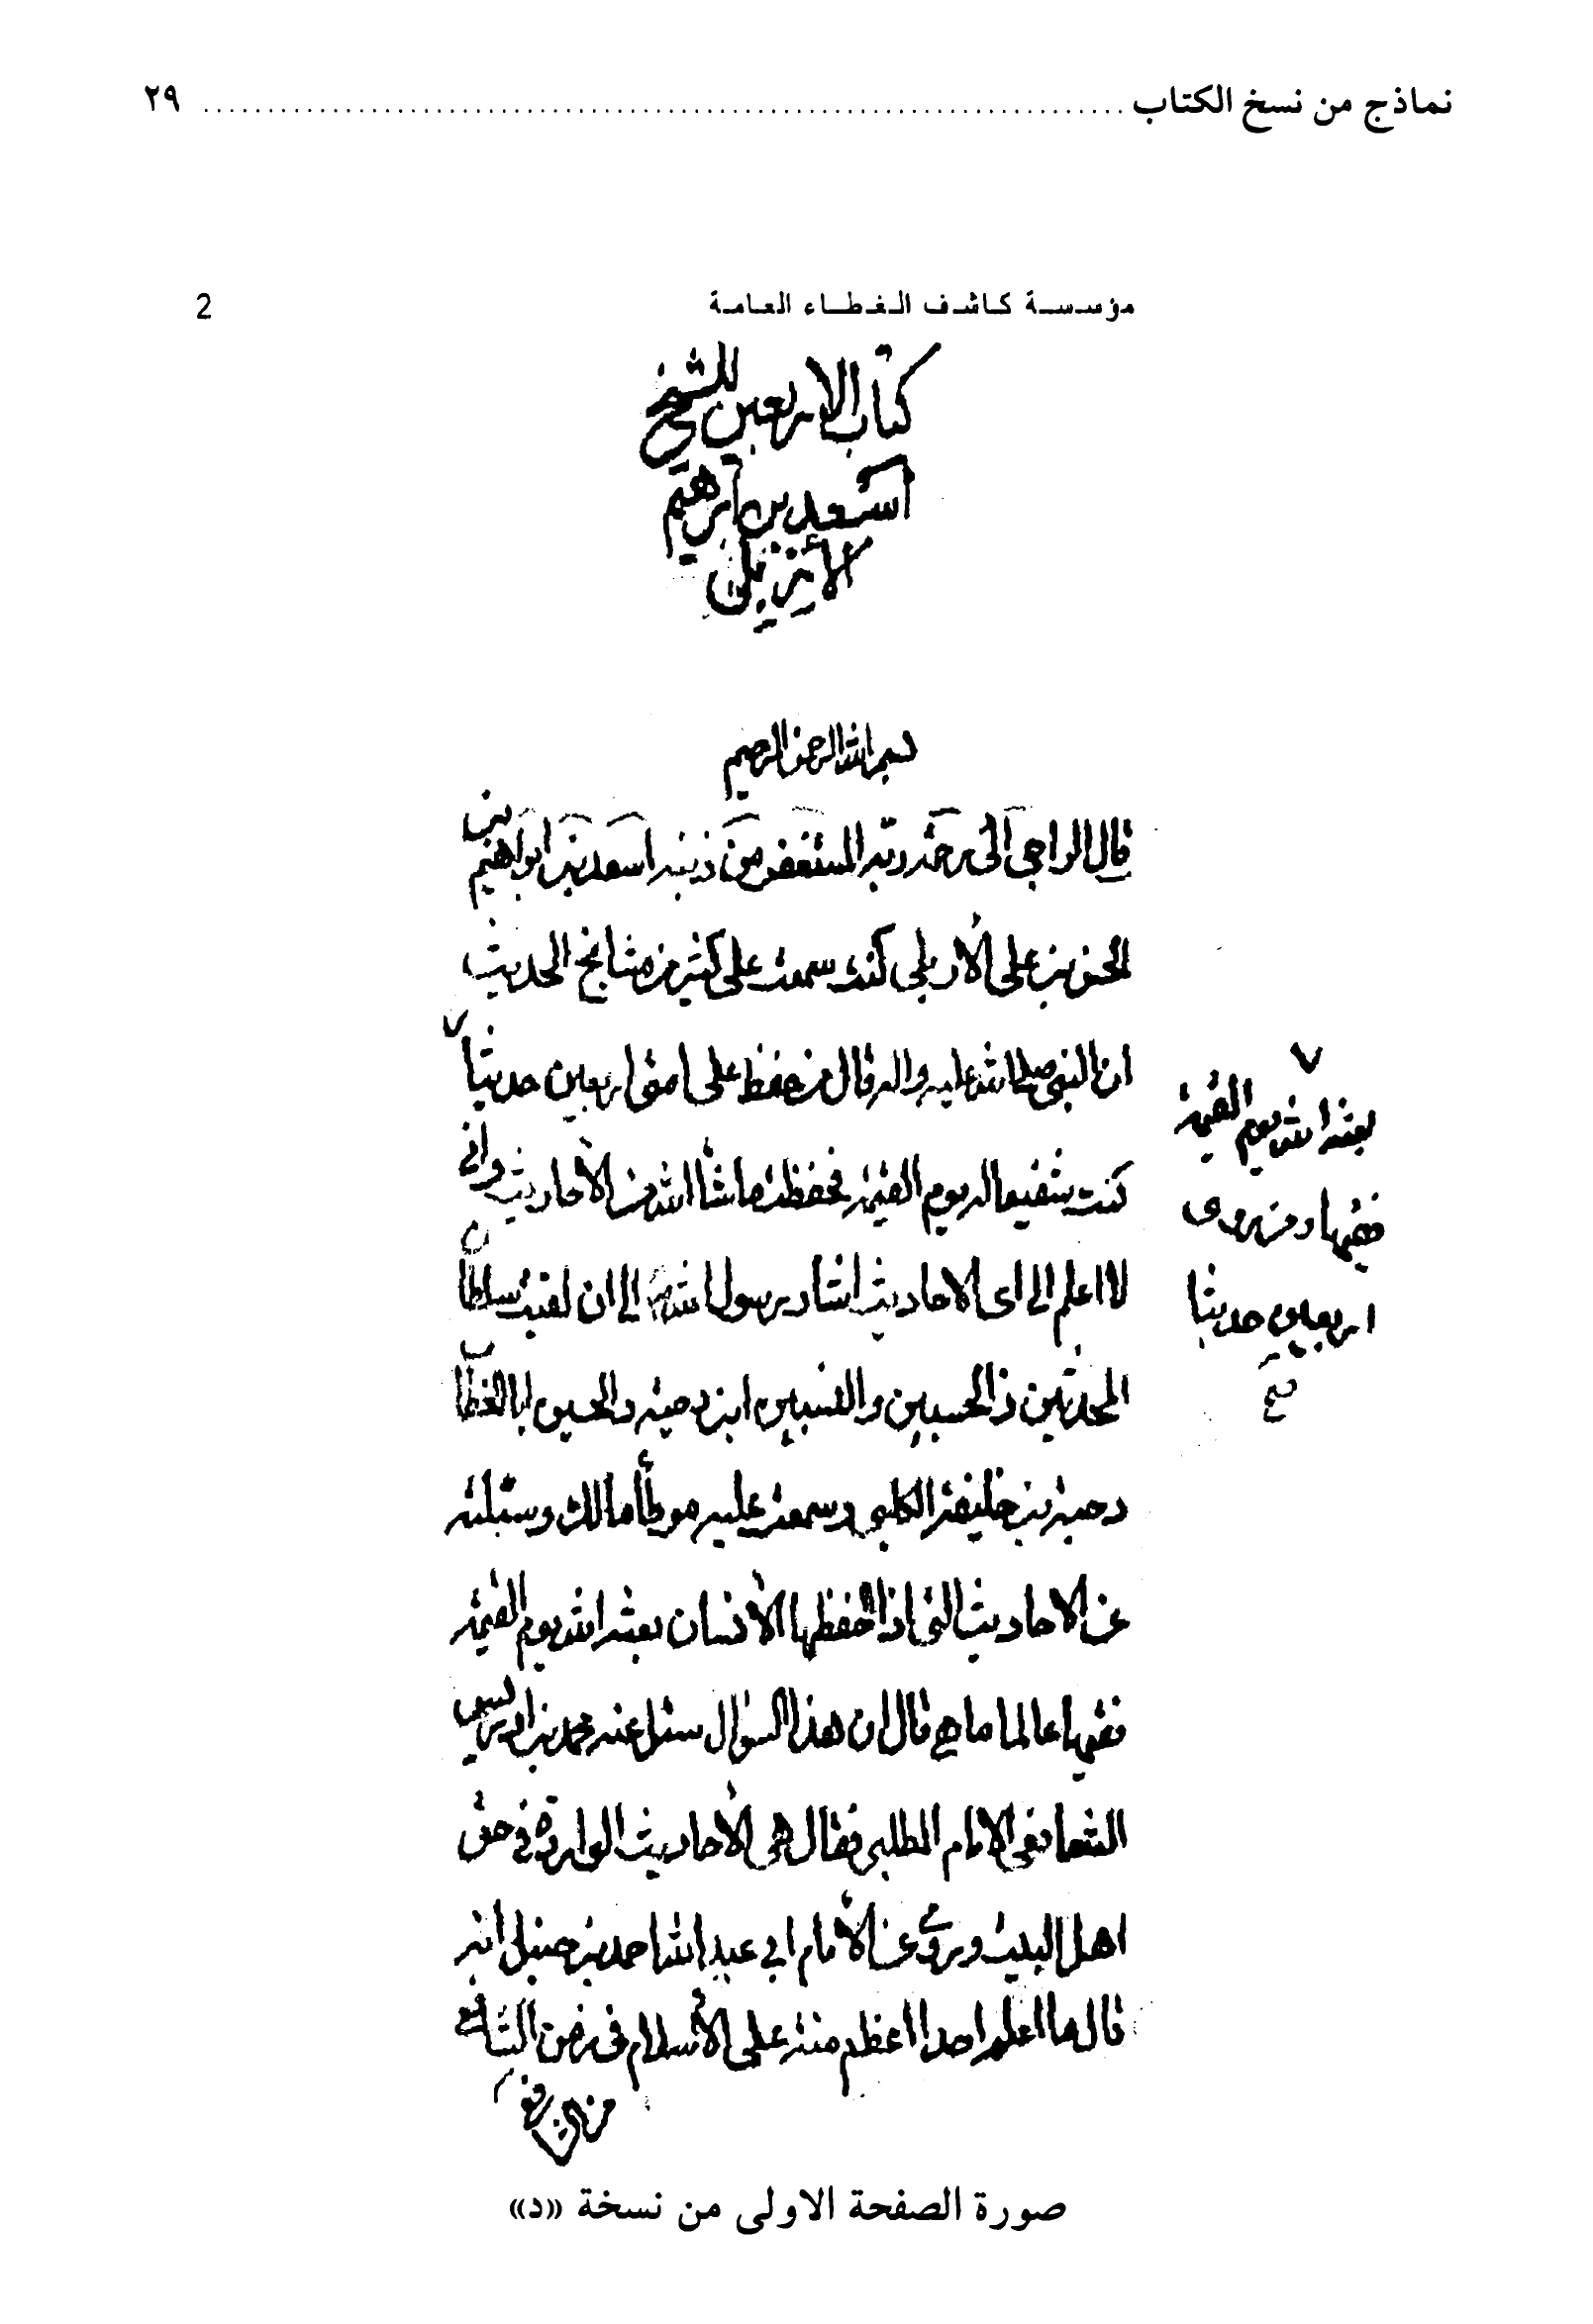 نماذج من نسخ الكتاب ........................................ ٢٩
مؤسسة كاشف الغطاء العامة 2
كتاب الاربعين للشيخ
اسعد بن ابرهيم
الأربلي
بسم الله الرحمن الرحيم
قال الراجي الى رحمة ربه المستغفر من ذنبه اسعد بن ابراهيم بن
الحسن بن علي الأربلي كنت سمعت على كثير من مشائخ الحديث
ان النبي صلى الله عليه واله قال من حفظ على امتي اربعين حديثا
بعثه الله يوم القيمة
فقيها ومن روى
اربعين حديثا
صح
كنت شفيعا له يوم القيمة فحفظت ما شاء الله من الأحاديث واني
لا اعلم الى اى الاحاديث اشار رسول الله الى ان لقيت سلطان
المحدثين ذا الحسبين والنسبين ابن دحية والحسين ابا الخطاب
دحية بن خليفة الكلبي وسمعت عليه موطأ مالك وسئلته
عن الاحاديث التي اذا حفظها الأنسان بعثه الله يوم القيمة
فقيها عالما ما هي قال ان هذا السؤال سئل عنه محمد بن ادريس
الشافعى الامام المطلبي فقال هى الأحاديث الواردة في حق
اهل البيت وروى عن الأمام ابي عبد الله احمد بن حنبل انه
قال ما اعلم احدا اعظم منة على الأسلام فى زمن الشافعي
من الشافعي
صورة الصفحة الاولى من نسخة «د»